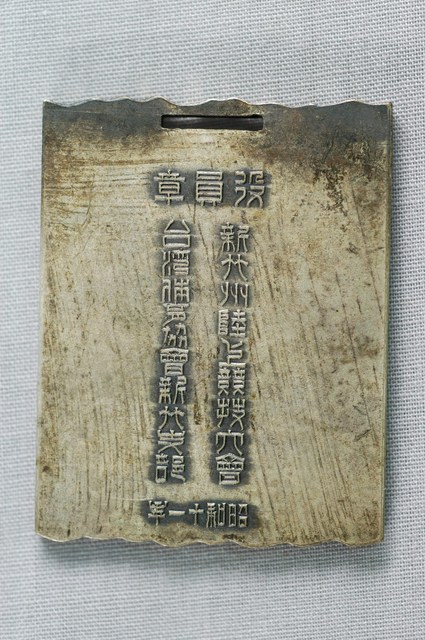 役員章
新竹州陸上競技大會
台灣体育協會新竹支部
昭和十一年